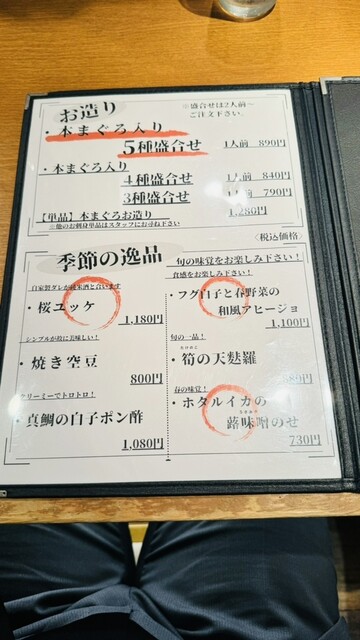 お造り
※盛合せは2人前~
ご注文下さい
・本まぐろ入り
5種盛合せ 1人前 890円
・本まぐろ入り
4種盛合せ 1人前 840円
3種盛合せ 1人前 790円
【単品】本まぐろお造り 1,280円
※他のお刺身単品はスタッフにお尋ね下さい
〈税込価格〉
季節の逸品
旬の味覚をお楽しみ下さい!
自家製ダレが純米酒と合います
・桜ユッケ
1,180円
シンプルが故に美味しい!
・焼き空豆
800円
クリーミーでトロトロ!
・真鯛の白子ポン酢
1,080円
食感をお楽しみ下さい!
・フグ白子と春野菜の
和風アヒージョ
1,100円
旬の一品!
・筍の天麩羅
80円
春の味覚!
・ホタルイカの
蕗味噌のせ
730円